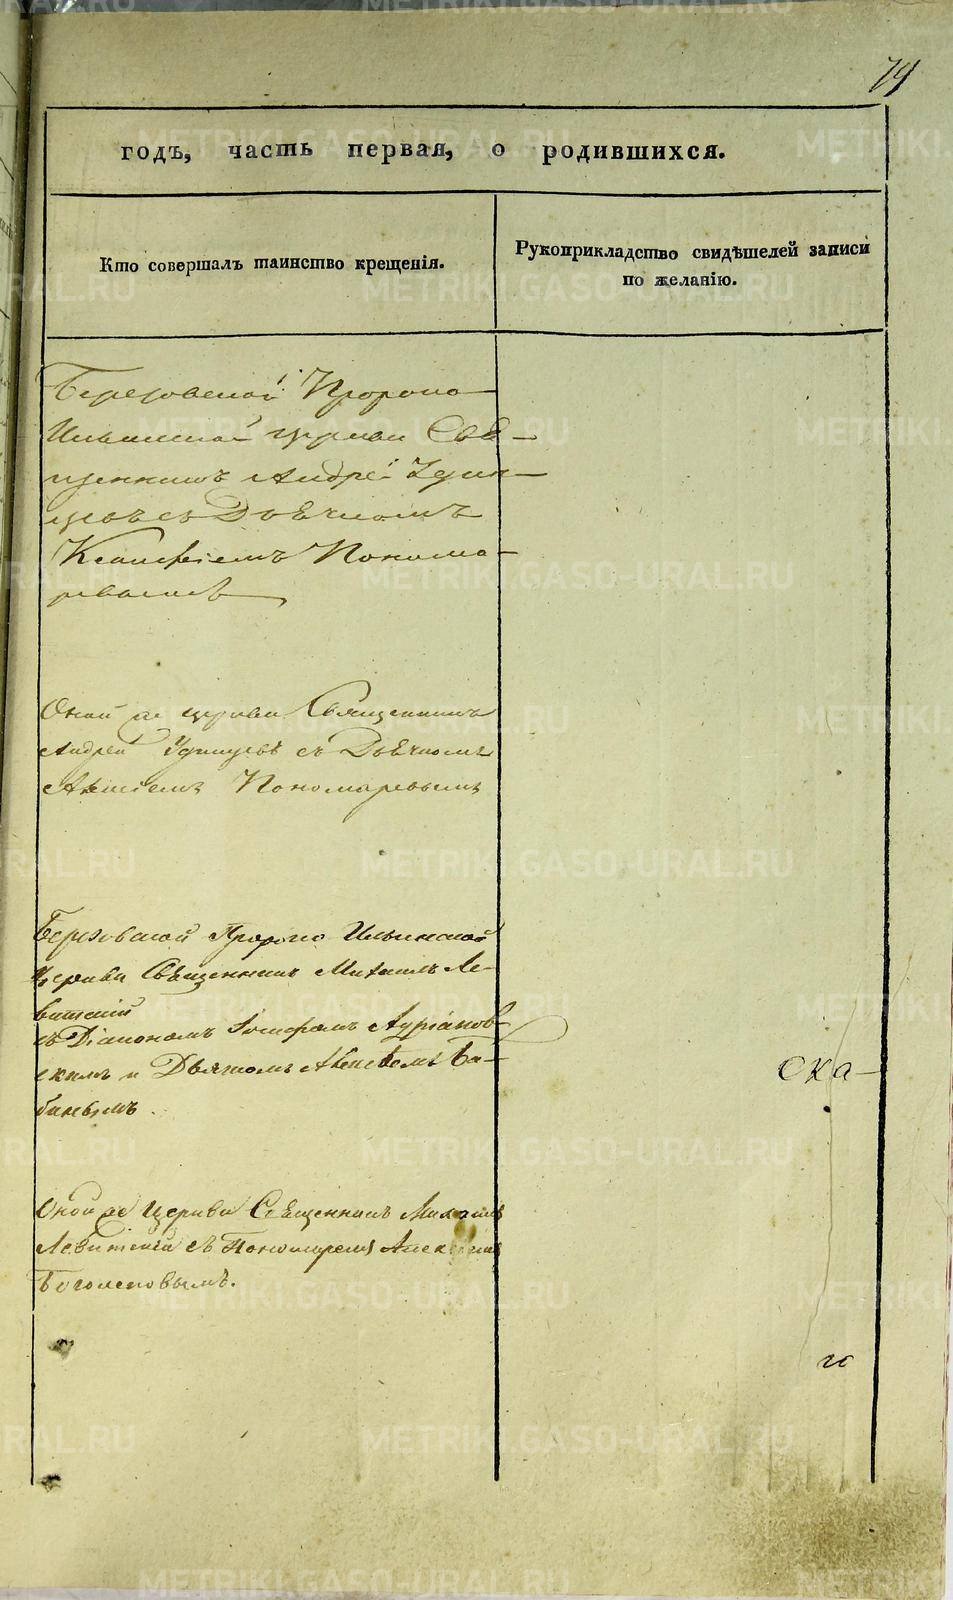 79
годъ, часть первая, о родившихся.
Кто совершалъ таинство крещенія.
Рукоприкладство свидѣтелей записи
по желанію.
Березовской Пророко
Ильинской церкви Свя-
щенникъ Андрей Удин-
цовъ съ Дьячкомъ
Понома-
ревымъ
Оной же церкви Священникъ
Андрей Удинцовъ съ Дьячкомъ
Пономаревымъ
Березовской Пророко Ильинской
Церкви Священникъ Михаилъ Ле-
витскій
съ Діакономъ Іосифомъ
скимъ и Дьячкомъ Алексѣемъ Ба-
бинымъ.
ска-
Оной же Церкви Священникъ Михаилъ
Левитскій съ Пономаремъ
Боголеповымъ.
го
METRIKI.GASO-URAL.RU